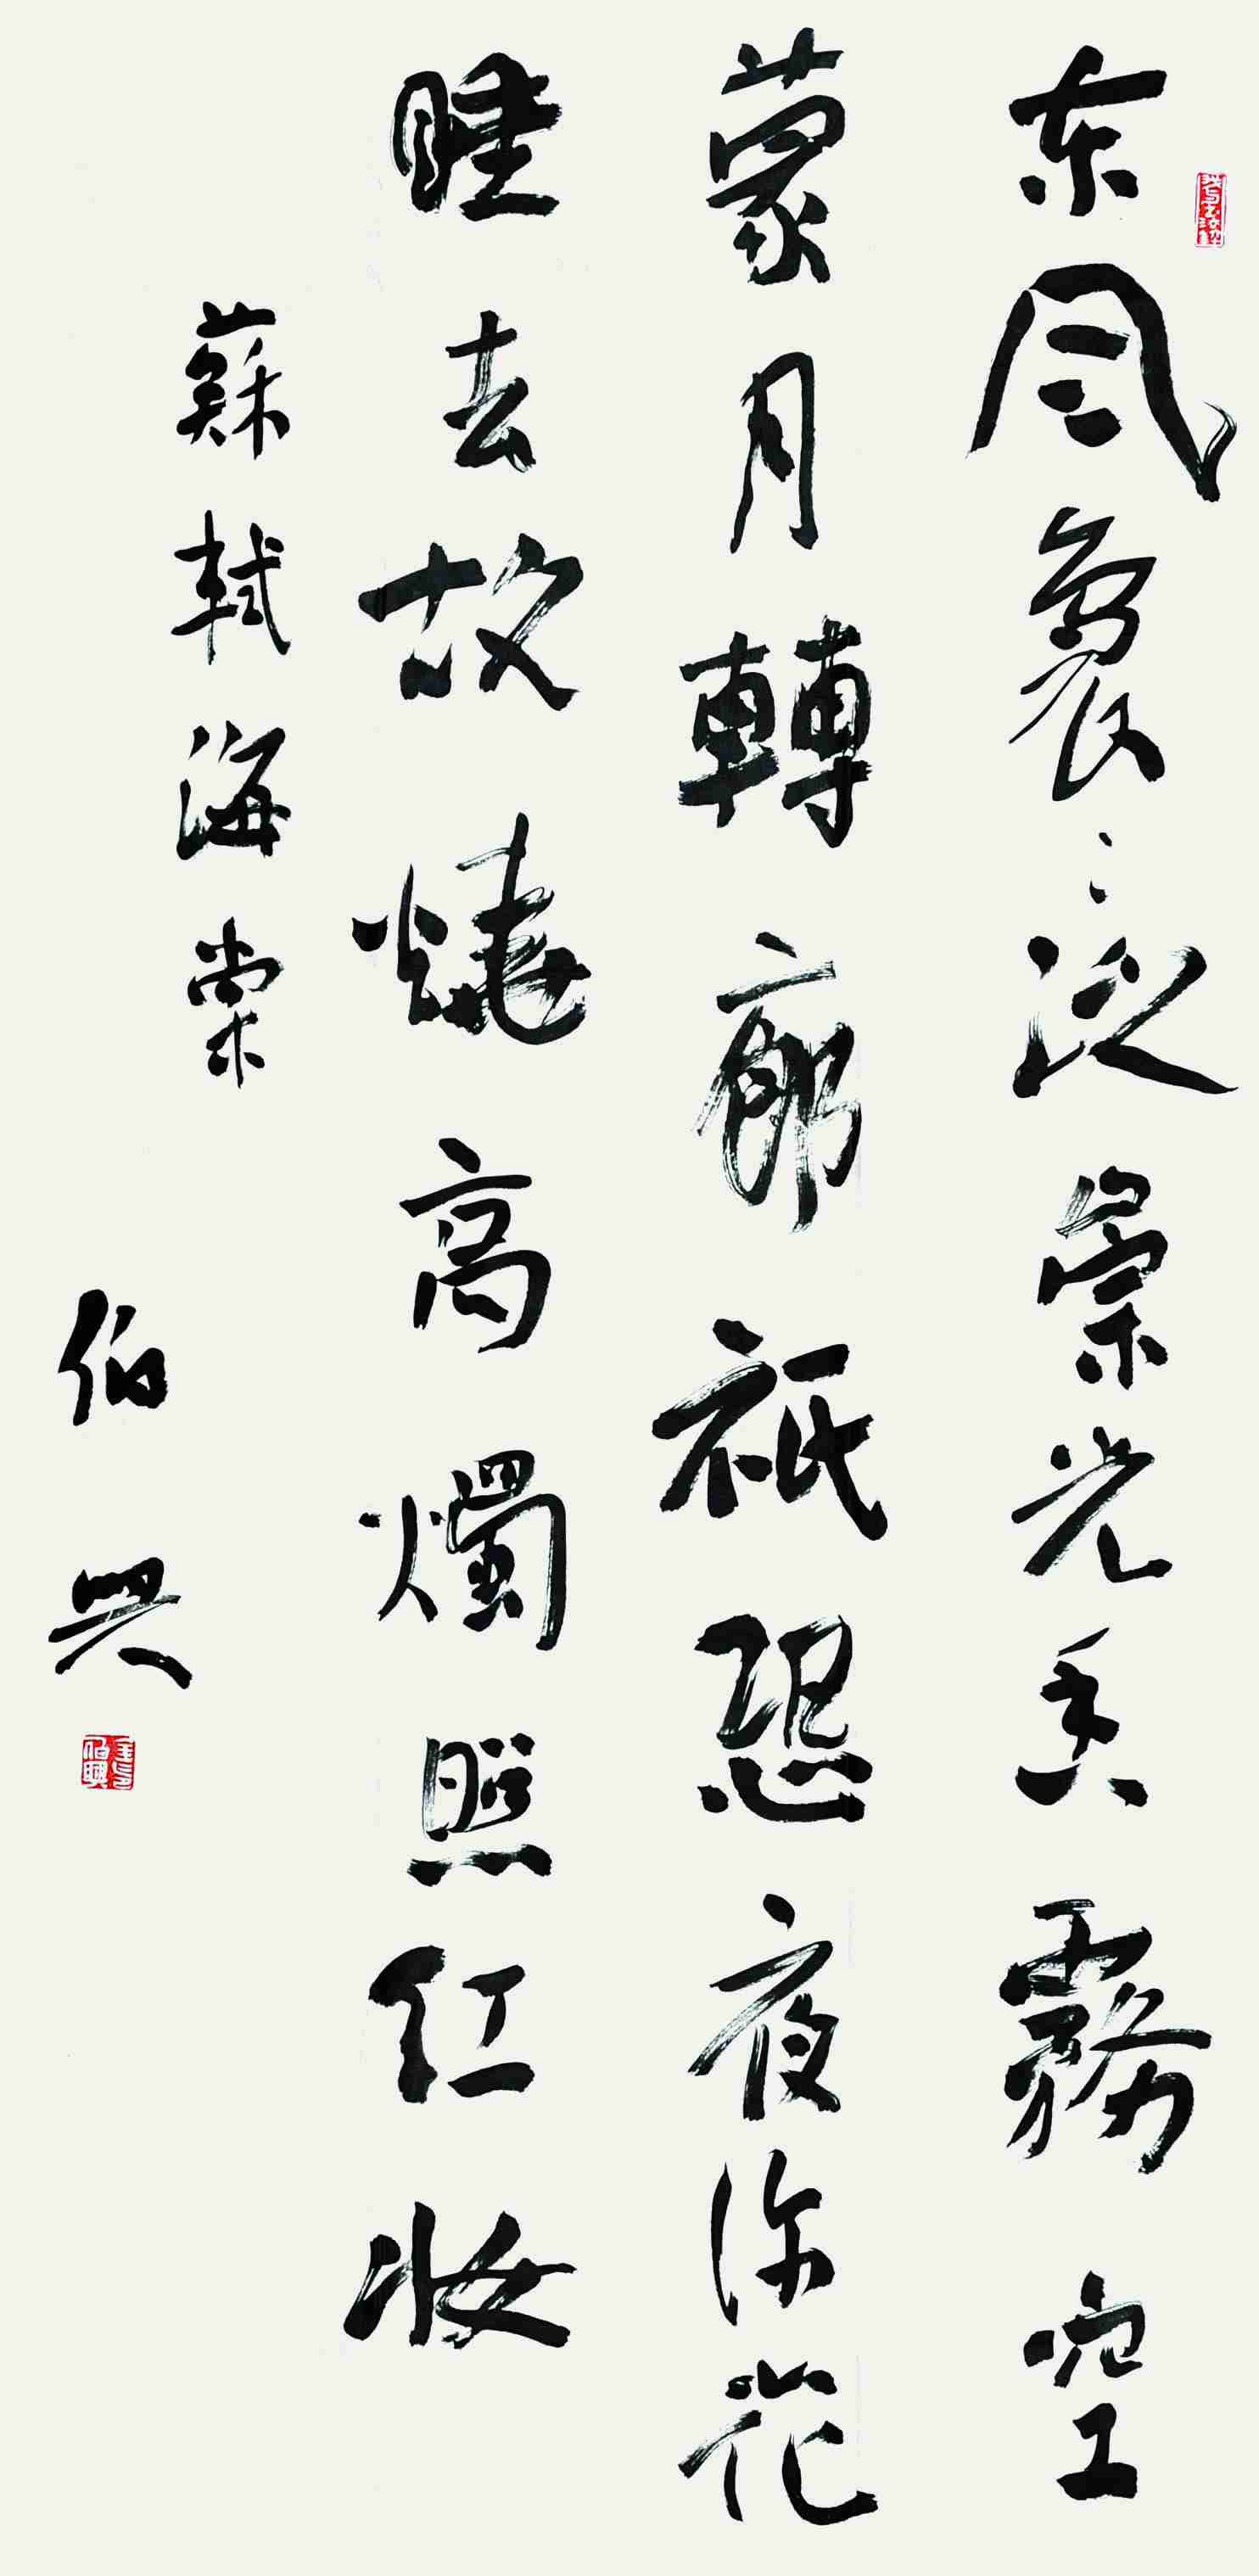 东風裊々泛崇光香霧空
蒙月轉廊祇恐夜深花
睡去故燒高燭照紅妝
蘇軾海棠
伯興